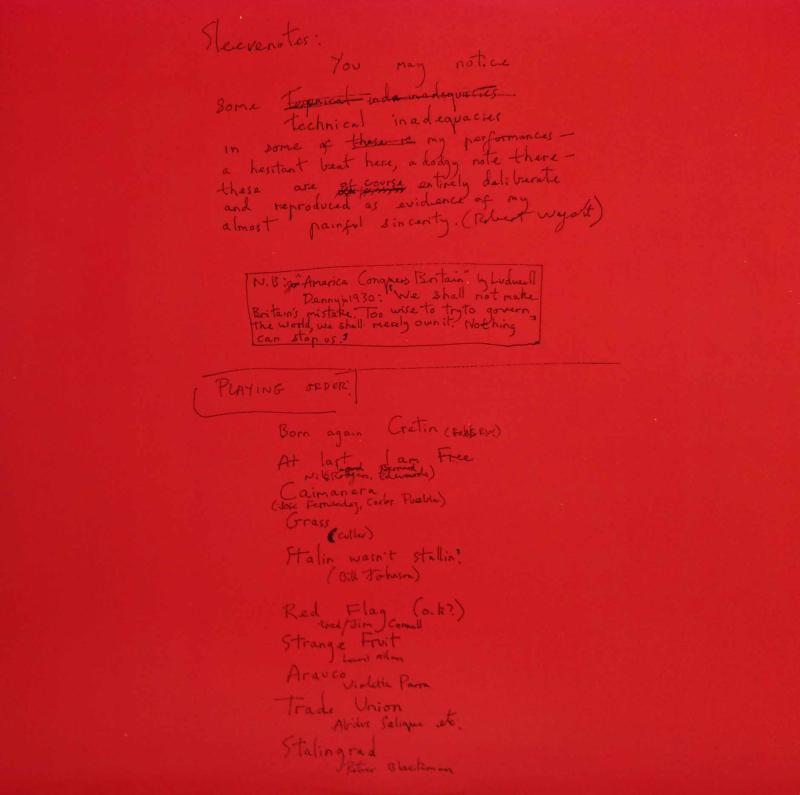 Sleevenotes:
You may notice
Some
technical inadequacies
in some of my performances —
a hesitant beat here, a dodgy note there —
these are entirely deliberate
and reproduced as evidence of my
almost painful sincerity. (Robert Wyatt)
N.B: "America Conquers Britain" by Ludwell
Denny, 1930: "We shall not make
Britain's mistake. Too wise to try to govern
the world, we shall merely own it. Nothing
can stop us."
PLAYING ORDER:
Born again Cretin
At last I am Free
Edwards)
Caimanera
(Jose Fernandez, Carlos Puebla)
Grass
(Cutler)
Stalin wasn't stallin'
(Bill Johnson)
Red Flag (o.k?)
trad/Jim Connell
Strange Fruit
Lewis Allan
Arauco
Violetta Parra
Trade Union
Abdus Salique etc.
Stalingrad
Peter Blackman